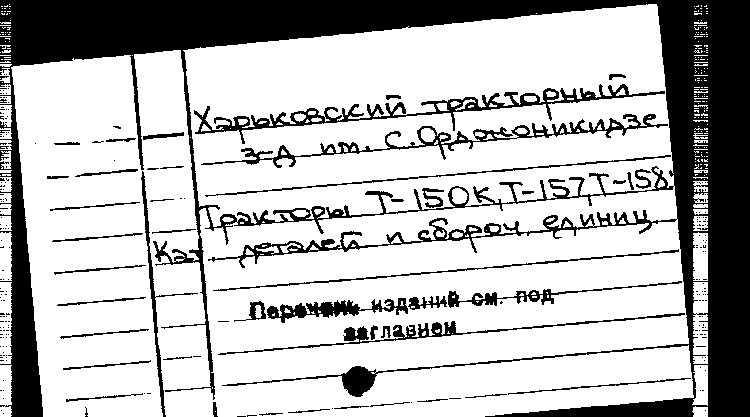 Харьковский тракторный
з-д им. С. Орджоникидзе.
Тракторы Т-150К, Т-157, Т-158:
Кат. деталей и сбороч. единиц.
Перечень изданий см. под
заглавием